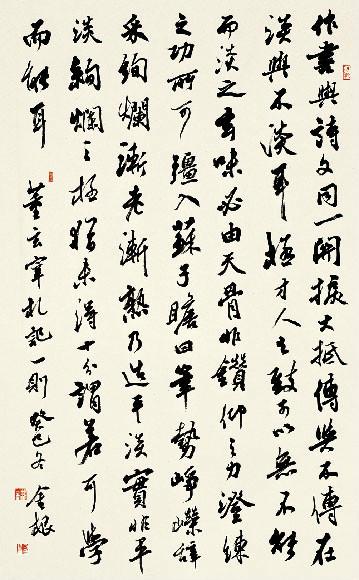 作书與詩文同一關捩大抵傳與不傳在
淡與不淡耳極才人之致可以無不能
而淡之玄味必由天骨非鑽仰之力澄練
之功所可彊入蘇子瞻曰筆勢崢嶸辞
采绚爛漸老漸熟乃造平淡實非平
淡絢爛之極猶未得十分謂若可學
而能耳 董玄宰札記一則 癸巳冬 金根